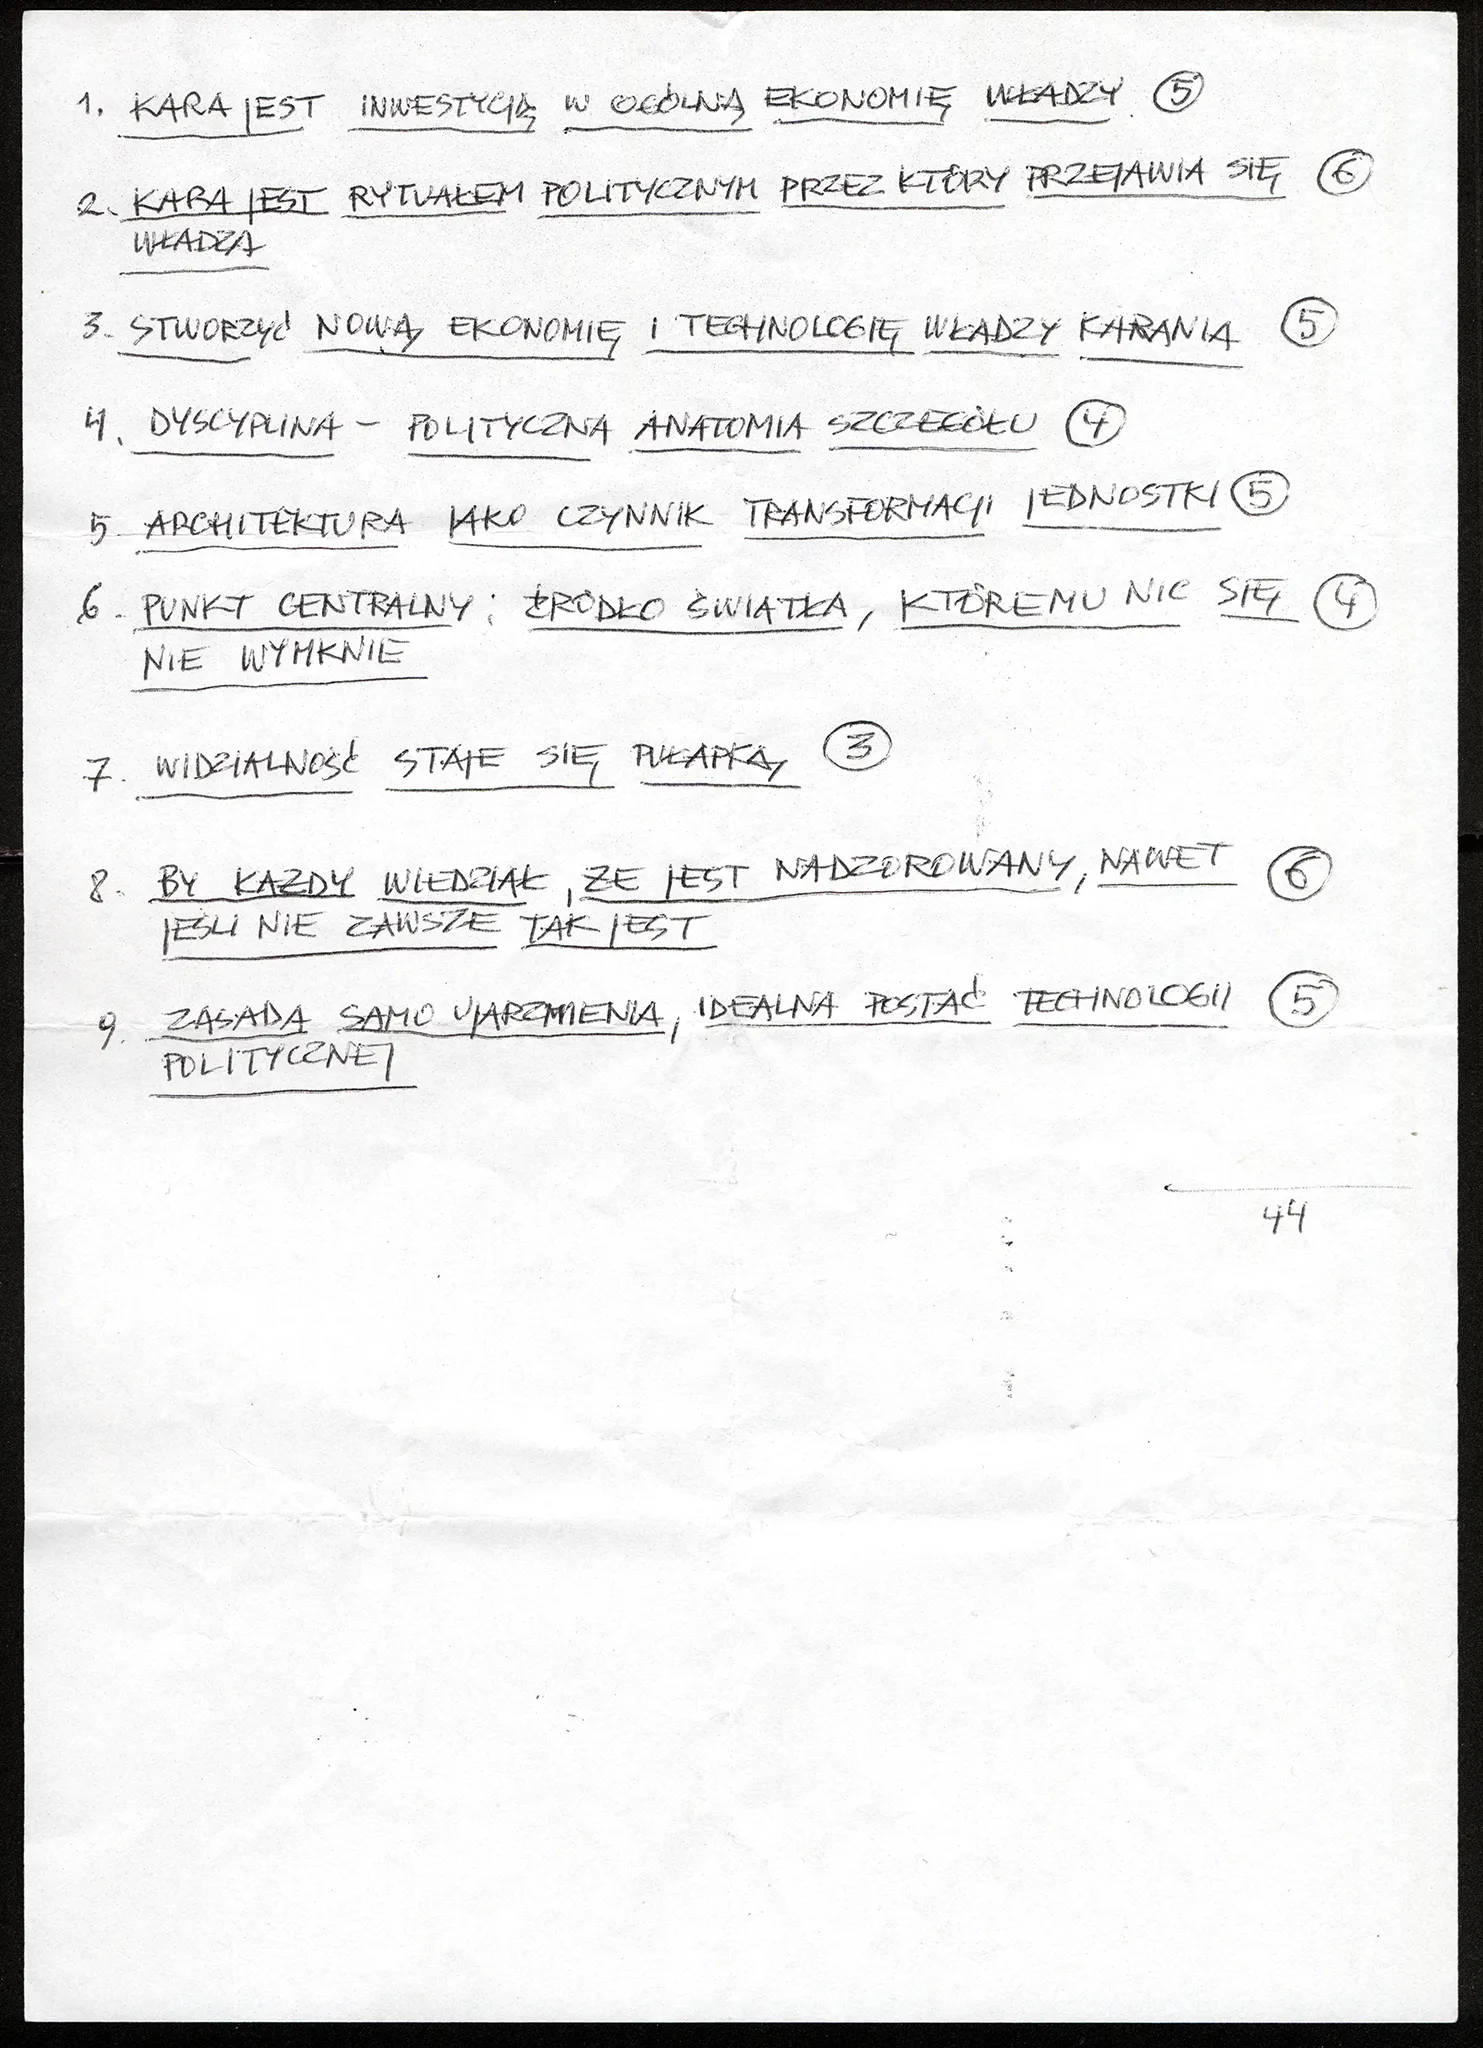 1. KARA JEST INWESTYCJĄ W OGÓLNĄ EKONOMIĘ WŁADZY 5
2. KARA JEST RYTUAŁEM POLITYCZNYM PRZEZ KTÓRY PRZEJAWIA SIĘ 6
WŁADZA
3. STWORZYĆ NOWĄ EKONOMIĘ I TECHNOLOGIĘ WŁADZY KARANIA 5
4. DYSCYPLINA - POLITYCZNA ANATOMIA SZCZEGÓŁU 4
5. ARCHITEKTURA JAKO CZYNNIK TRANSFORMACJI JEDNOSTKI 5
6. PUNKT CENTRALNY: ŹRÓDŁO ŚWIATŁA, KTÓREMU NIC SIĘ 4
NIE WYMKNIE
7. WIDZIALNOŚĆ STAJE SIĘ PUŁAPKĄ 3
8. BY KAŻDY WIEDZIAŁ, ŻE JEST NADZOROWANY, NAWET 6
JEŚLI NIE ZAWSZE TAK JEST
9. ZASADA SAMO UJARZMIENIA, IDEALNA POSTAĆ TECHNOLOGII 5
POLITYCZNEJ
44